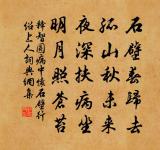 石壁春歸去
孤山秋未來
夜深扶病坐
明月照蒼苔
釋智圓病中懷石壁行
紹上人詞典網集